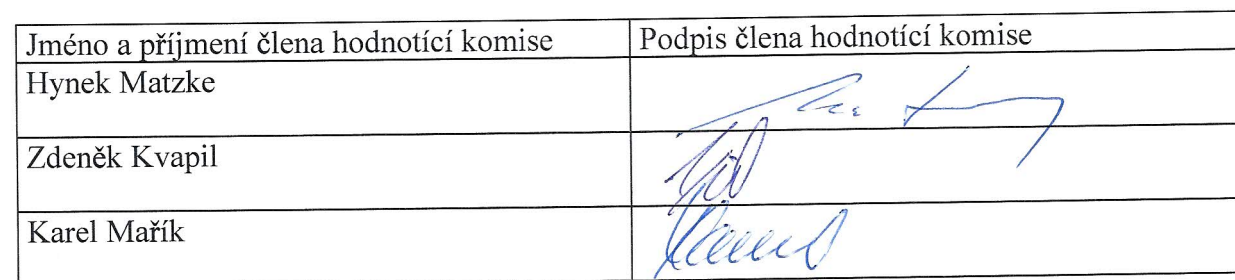 Jméno a příjmení člena hodnotící komise Podpis člena hodnotící komise
Hynek Matzke
Zdeněk Kvapil
Karel Mařík